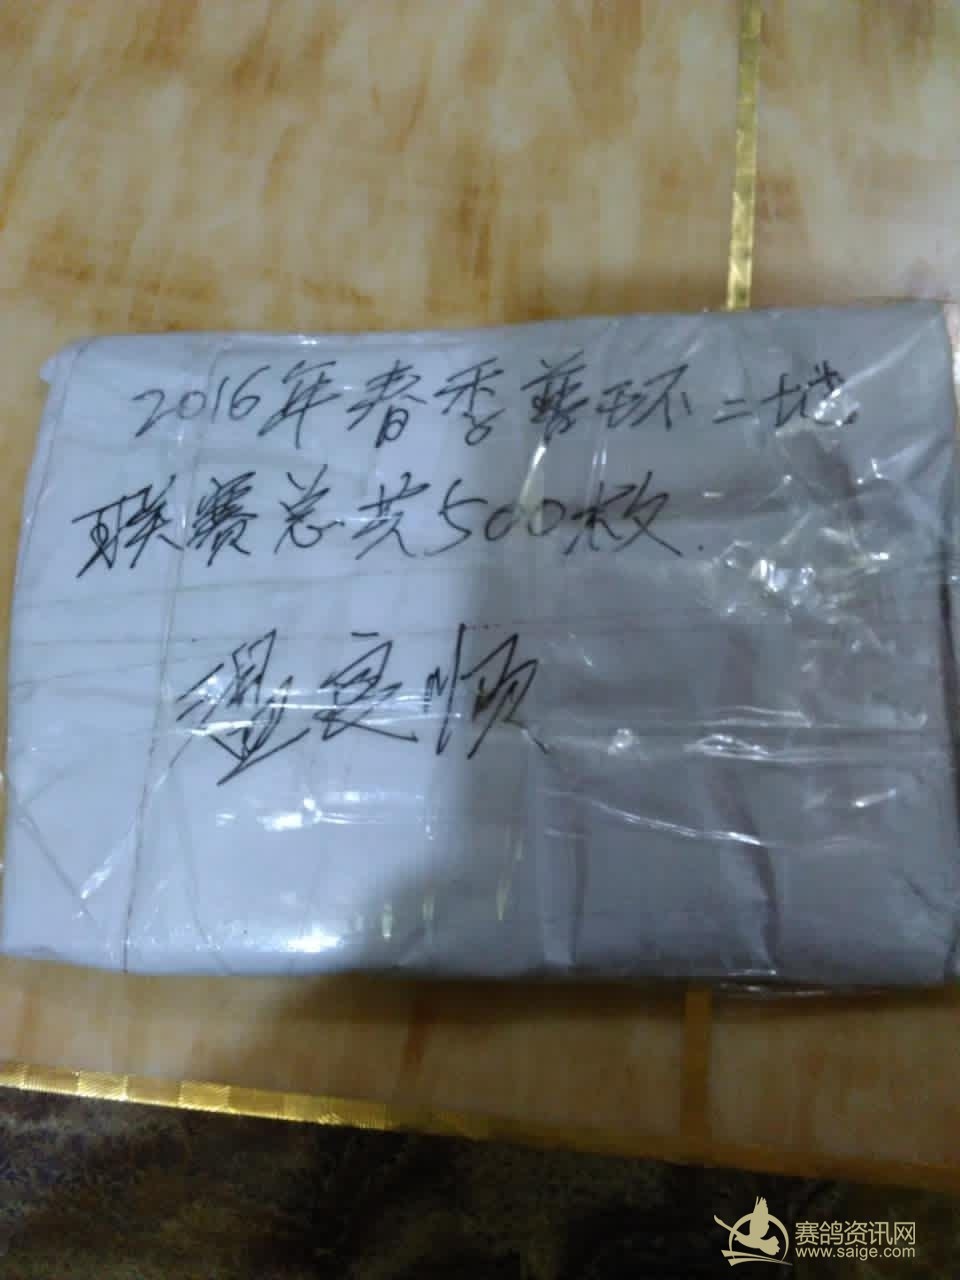 2016年春季 环二地
联赛总共500枚.
温良顺
赛鸽资讯网
www.saige.com